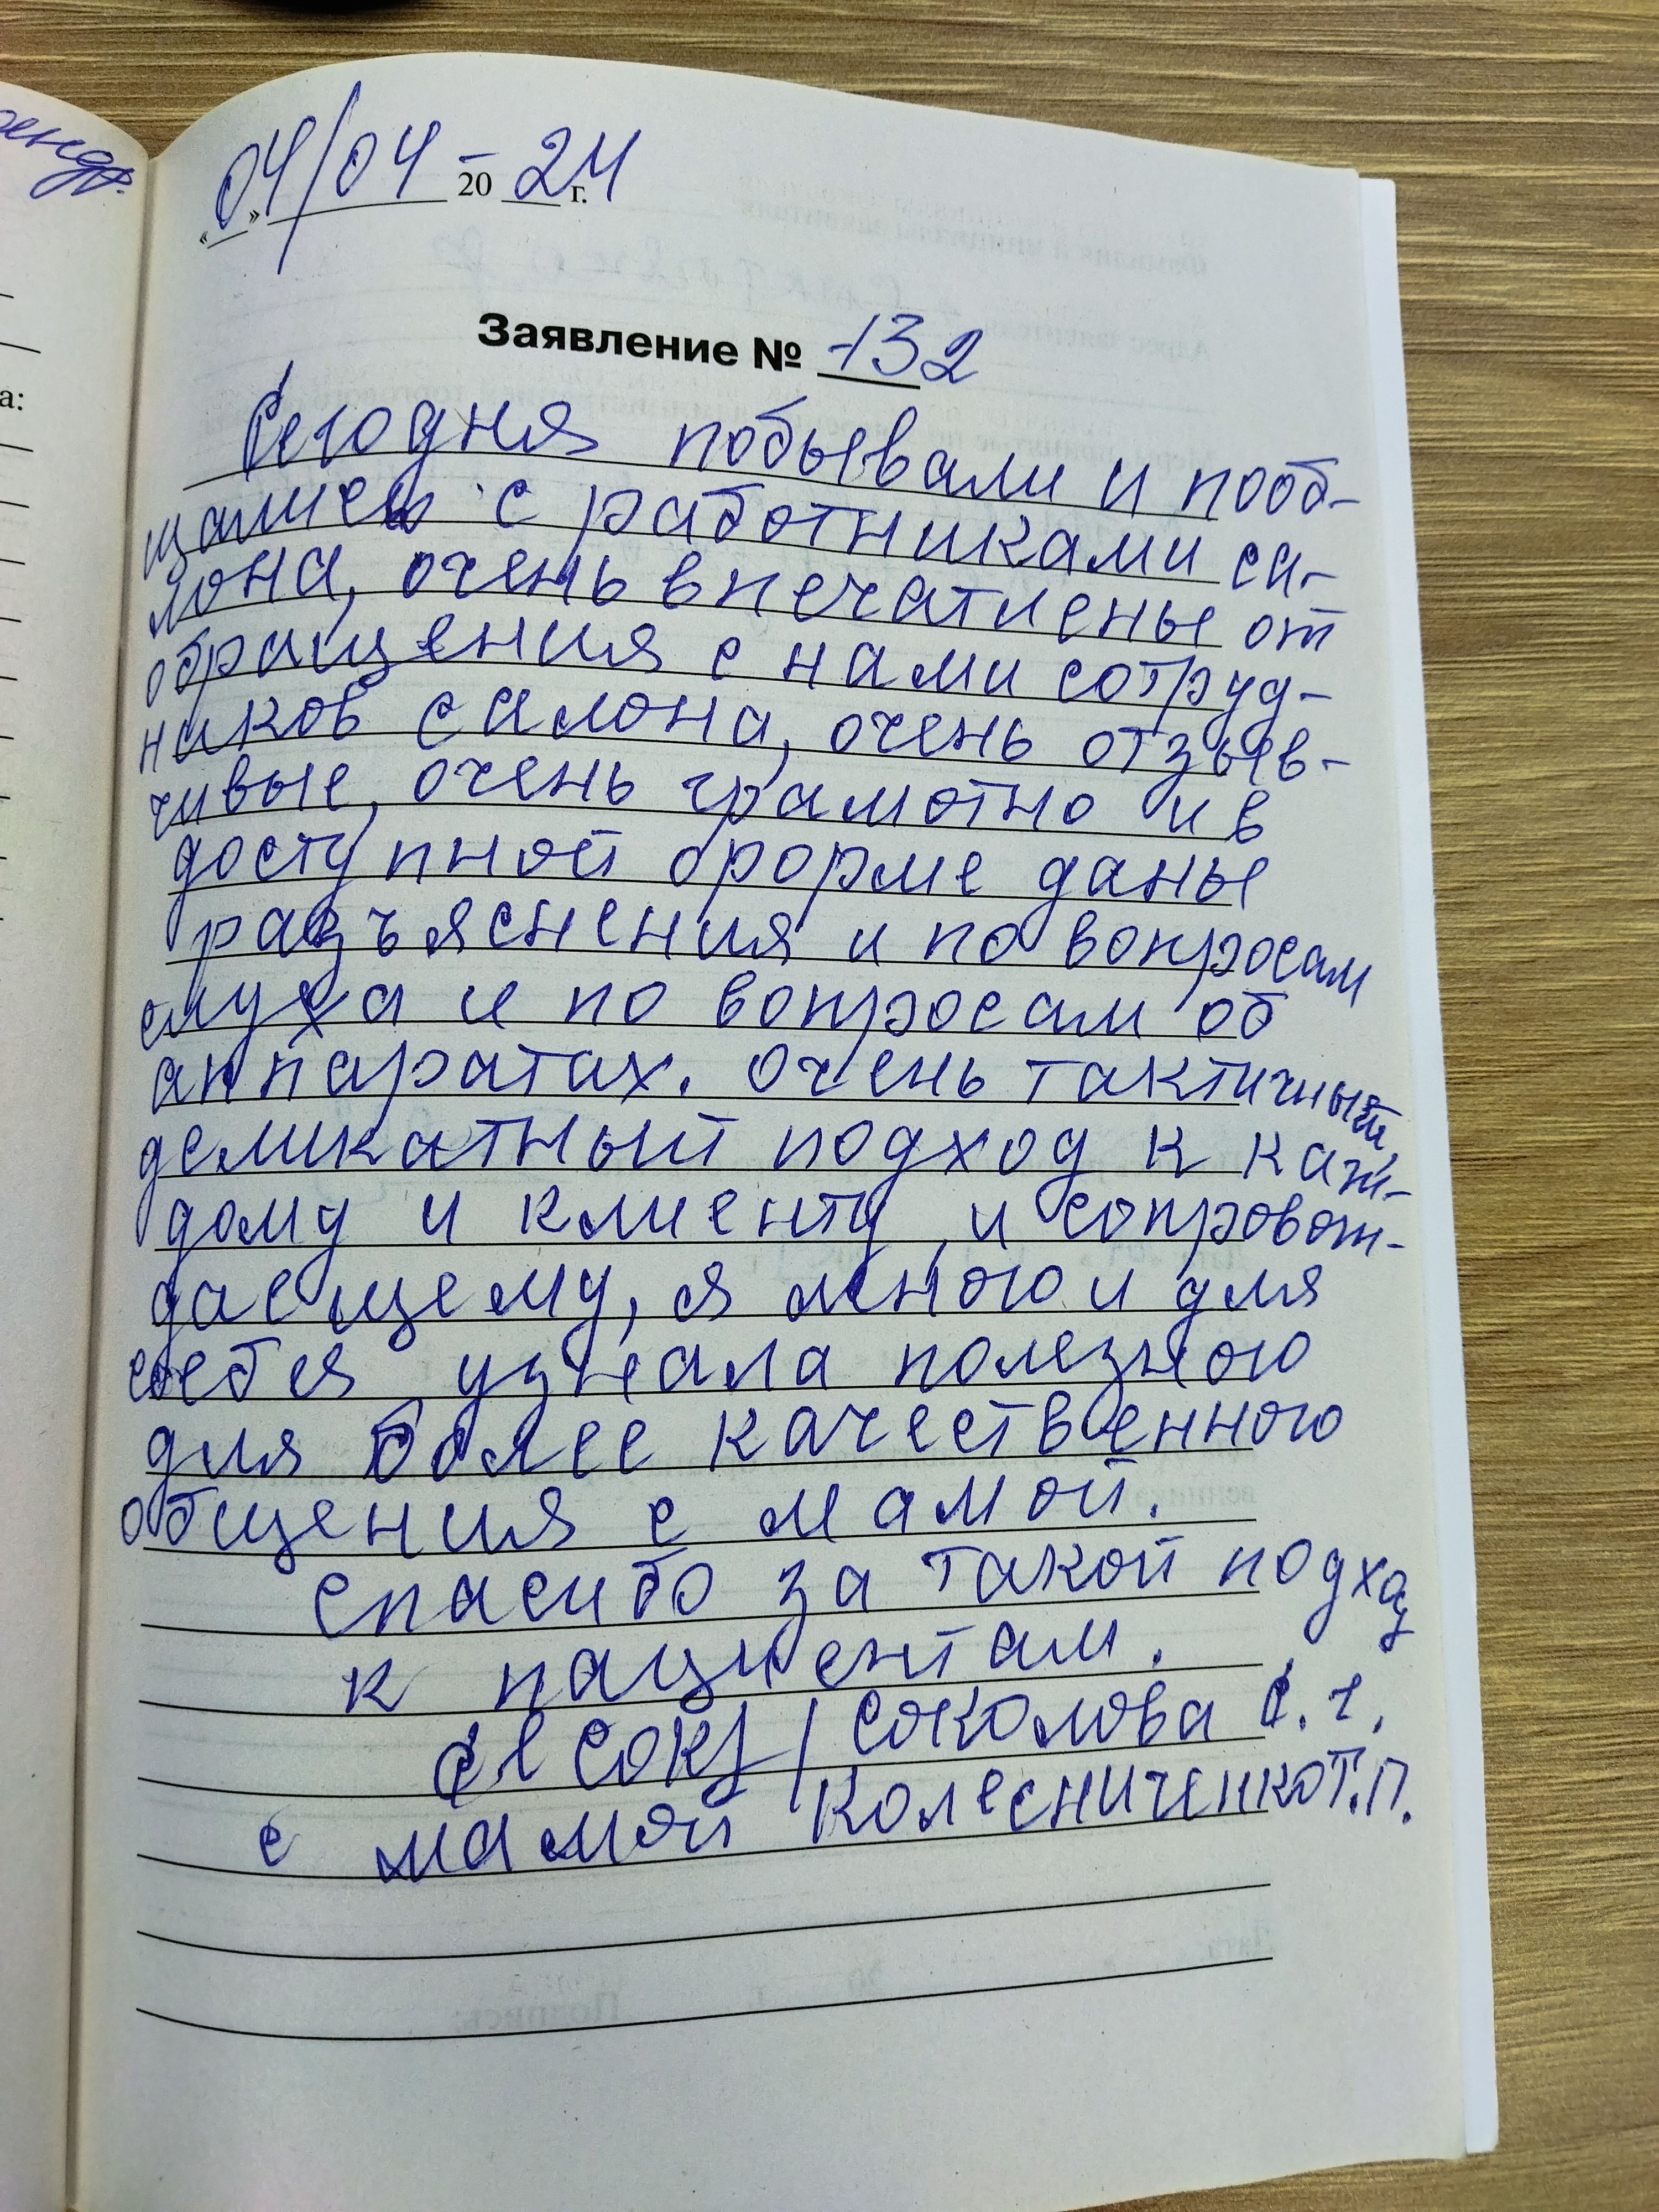 04/04 - 20 24 г.
Заявление № 132
Сегодня побывали и пооб-
щались с работниками са-
лона, очень впечатлены от
обращения с нами сотруд-
ников салона, очень отзыв-
чивые, очень грамотно и в
доступной форме даны
разъяснения и по вопросам
слуха и по вопросам об
аппаратах. очень тактичный,
деликатный подход к каж-
дому и клиенту, и сопровож-
дающему, я много и для
себя узнала полезного
для более качественного
общения с мамой.
Спасибо за такой подход
к пациентам.
Соколова С.
с мамой Колесниченко Т.П.
а: